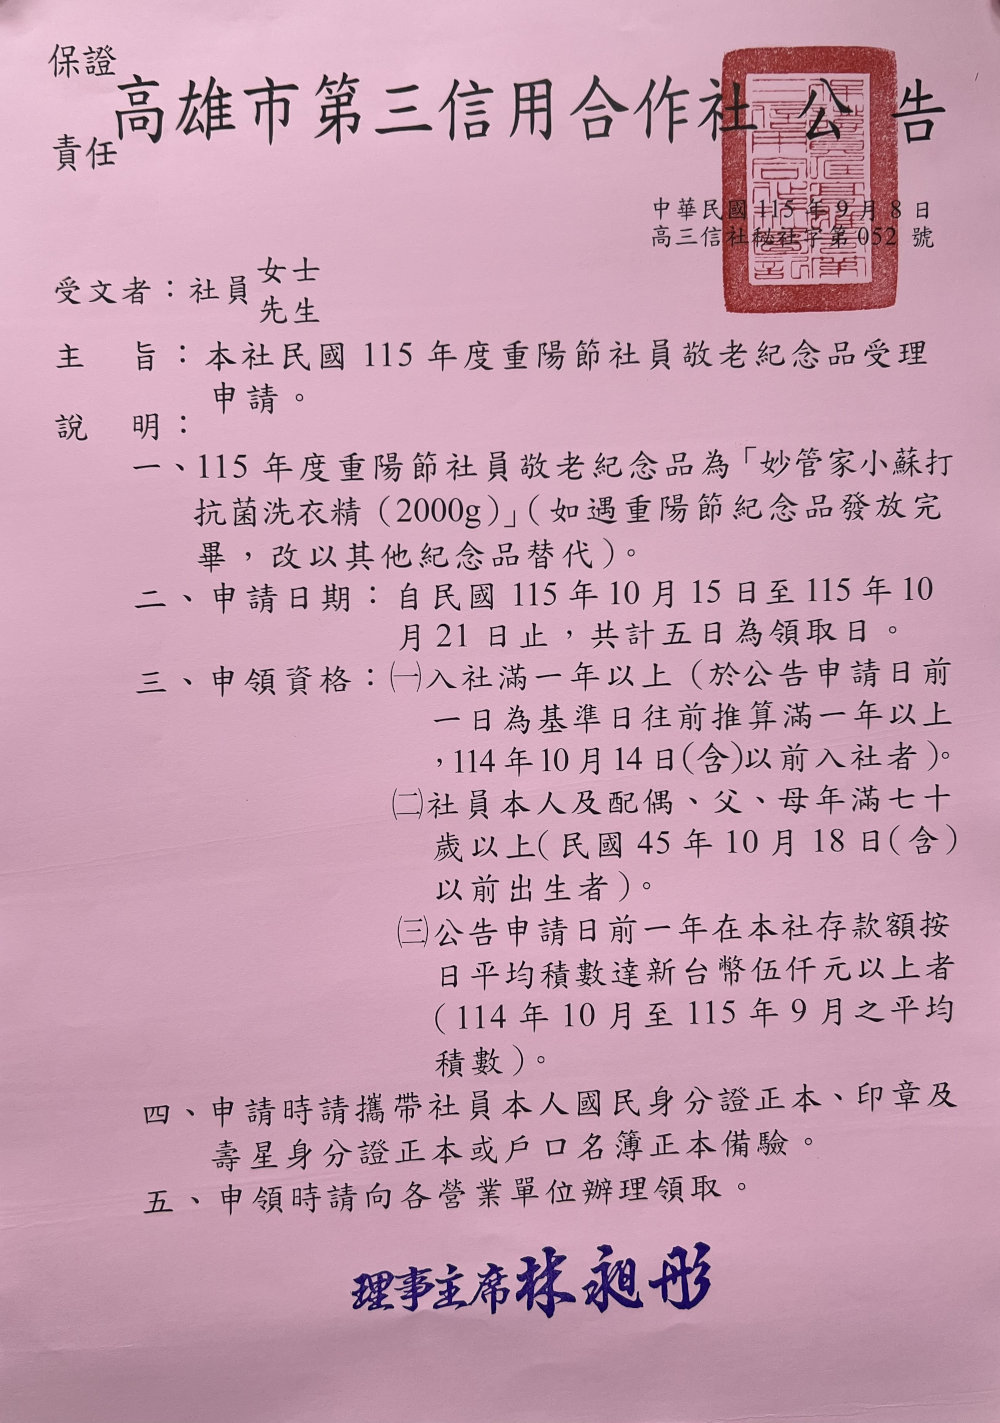 保證
責任
高雄市第三信用合作社 公告
中華民國 115 年 9 月 8 日
高三信社秘社字第 052 號
受文者：社員女士
先生
主 旨：本社民國 115 年度重陽節社員敬老紀念品受理
申請。
說 明：
一、115 年度重陽節社員敬老紀念品為「妙管家小蘇打
抗菌洗衣精（2000g）」（如遇重陽節紀念品發放完
畢，改以其他紀念品替代）。
二、申請日期：自民國 115 年 10 月 15 日至 115 年 10
月 21 日止，共計五日為領取日。
三、申領資格：㈠入社滿一年以上（於公告申請日前
一日為基準日往前推算滿一年以上
，114 年 10 月 14 日(含)以前入社者）。
㈡社員本人及配偶、父、母年滿七十
歲以上（民國 45 年 10 月 18 日（含）
以前出生者）。
㈢公告申請日前一年在本社存款額按
日平均積數達新台幣伍仟元以上者
（114 年 10 月至 115 年 9 月之平均
積數）。
四、申請時請攜帶社員本人國民身分證正本、印章及
壽星身分證正本或戶口名簿正本備驗。
五、申領時請向各營業單位辦理領取。
理事主席林昶彤